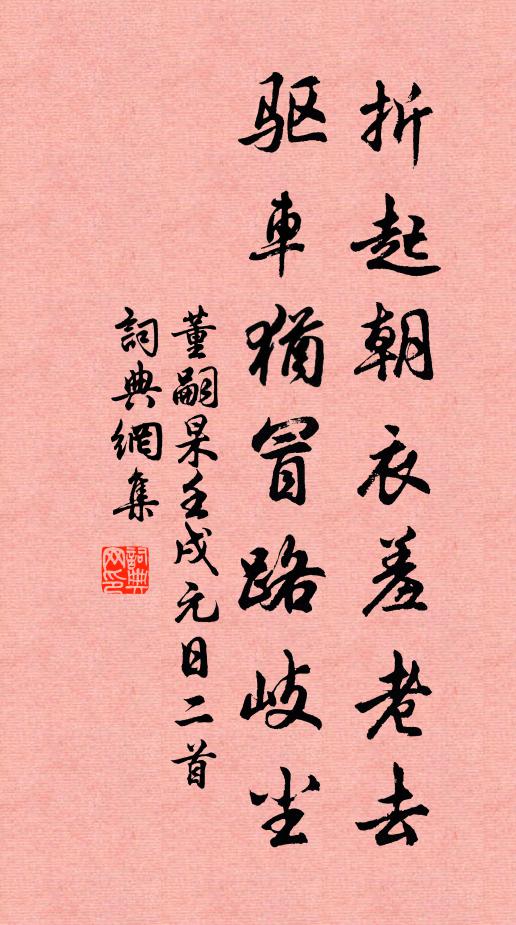 折起朝衣羞老去
驱車猶冒路岐尘
董嗣杲壬戌元日二首
詞典網集
詞典网印